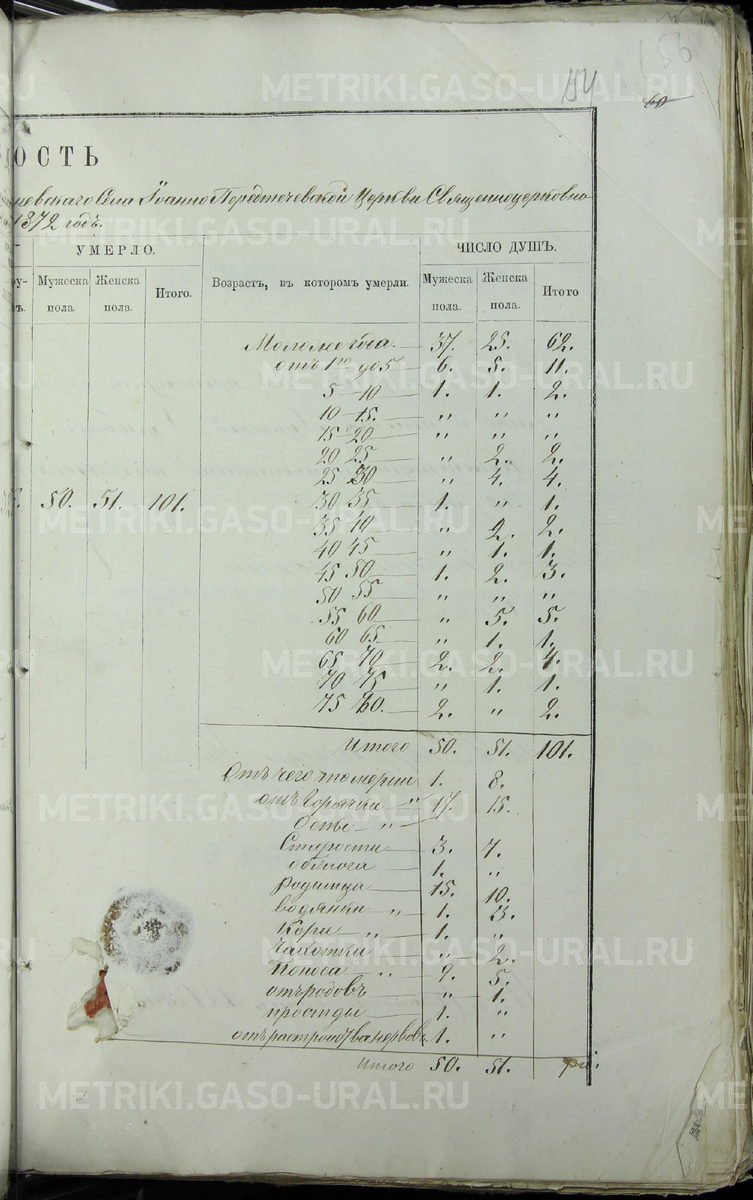 154
156
60
ОСТЬ
Села Іоанно Предтечевской Церкви Священноцерковно
1872 годъ.
УМЕРЛО.
ЧИСЛО ДУШЪ.
Мужеска пола. Женска пола. Итого. Возрастъ, въ которомъ умерли. Мужеска пола. Женска пола. Итого
37. 25. 62.
отъ 1го до 5 6. 5. 11.
5-10 1. 1. 2.
10-15. " " "
15-20 " " "
20 25 " 2. 2.
25 30 " 4. 4.
50. 51. 101. 30 35 1. " 1.
35 40 " 2. 2.
40 45 " 1. 1.
45 50 1. 2. 3.
50 55 " " "
55 60 " 5. 5.
60 65 " 1. 1.
65 70 2. 2. 4.
70 75 " 1. 1.
75 80. 2. " 2.
Итого 50. 51. 101.
Отъ чего померли 1. 8.
отъ Горячки " 17. 15.
Оспы "
Старости 3. 7.
1. "
Родимца 15. 10.
водянки " 1. 3.
Кори " 1. "
Чахотки " 2.
Поноса " 9. 5.
отъ родовъ " 1.
простуды 1. "
отъ растройства нервовъ. 1. "
Итого 50. 51.
METRIKI.GASO-URAL.RU